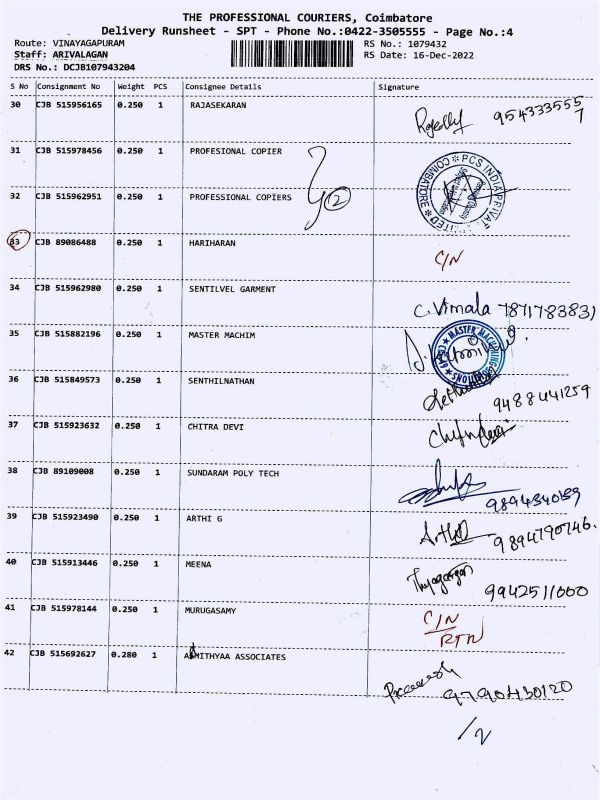 THE PROFESSIONAL COURIERS, Coimbatore
Delivery Runsheet - SPT - Phone No.:0422-3505555 - Page No.:4
Route: VINAYAGAPURAM RS No.: 1079432
Staff: ARIVALAGAN RS Date: 16-Dec-2022
DRS No.: DCJB107943204
S No Consignment No Weight PCS Consignee Details Signature
30 CJB 515956165 0.250 1 RAJASEKARAN 9543335557
31 CJB 515978456 0.250 1 PROFESIONAL COPIER
32 CJB 515962951 0.250 1 PROFESSIONAL COPIERS 12
PCS INDIA PRIVATE LIMITED COIMBATORE
33 CJB 89086488 0.250 1 HARIHARAN C/N
34 CJB 515962980 0.250 1 SENTILVEL GARMENT C. Vimala 7871783831
35 CJB 515882196 0.250 1 MASTER MACHIM
36 CJB 515849573 0.250 1 SENTHILNATHAN 9488441259
37 CJB 515923632 0.250 1 CHITRA DEVI
38 CJB 89109008 0.250 1 SUNDARAM POLY TECH
39 CJB 515923490 0.250 1 ARTHI G 9894790746.
40 CJB 515913446 0.250 1 MEENA Thyagarajan 9942511000
41 CJB 515978144 0.250 1 MURUGASAMY C/N
RTN
42 CJB 515692627 0.280 1 ASSOCIATES 9790430120
/2